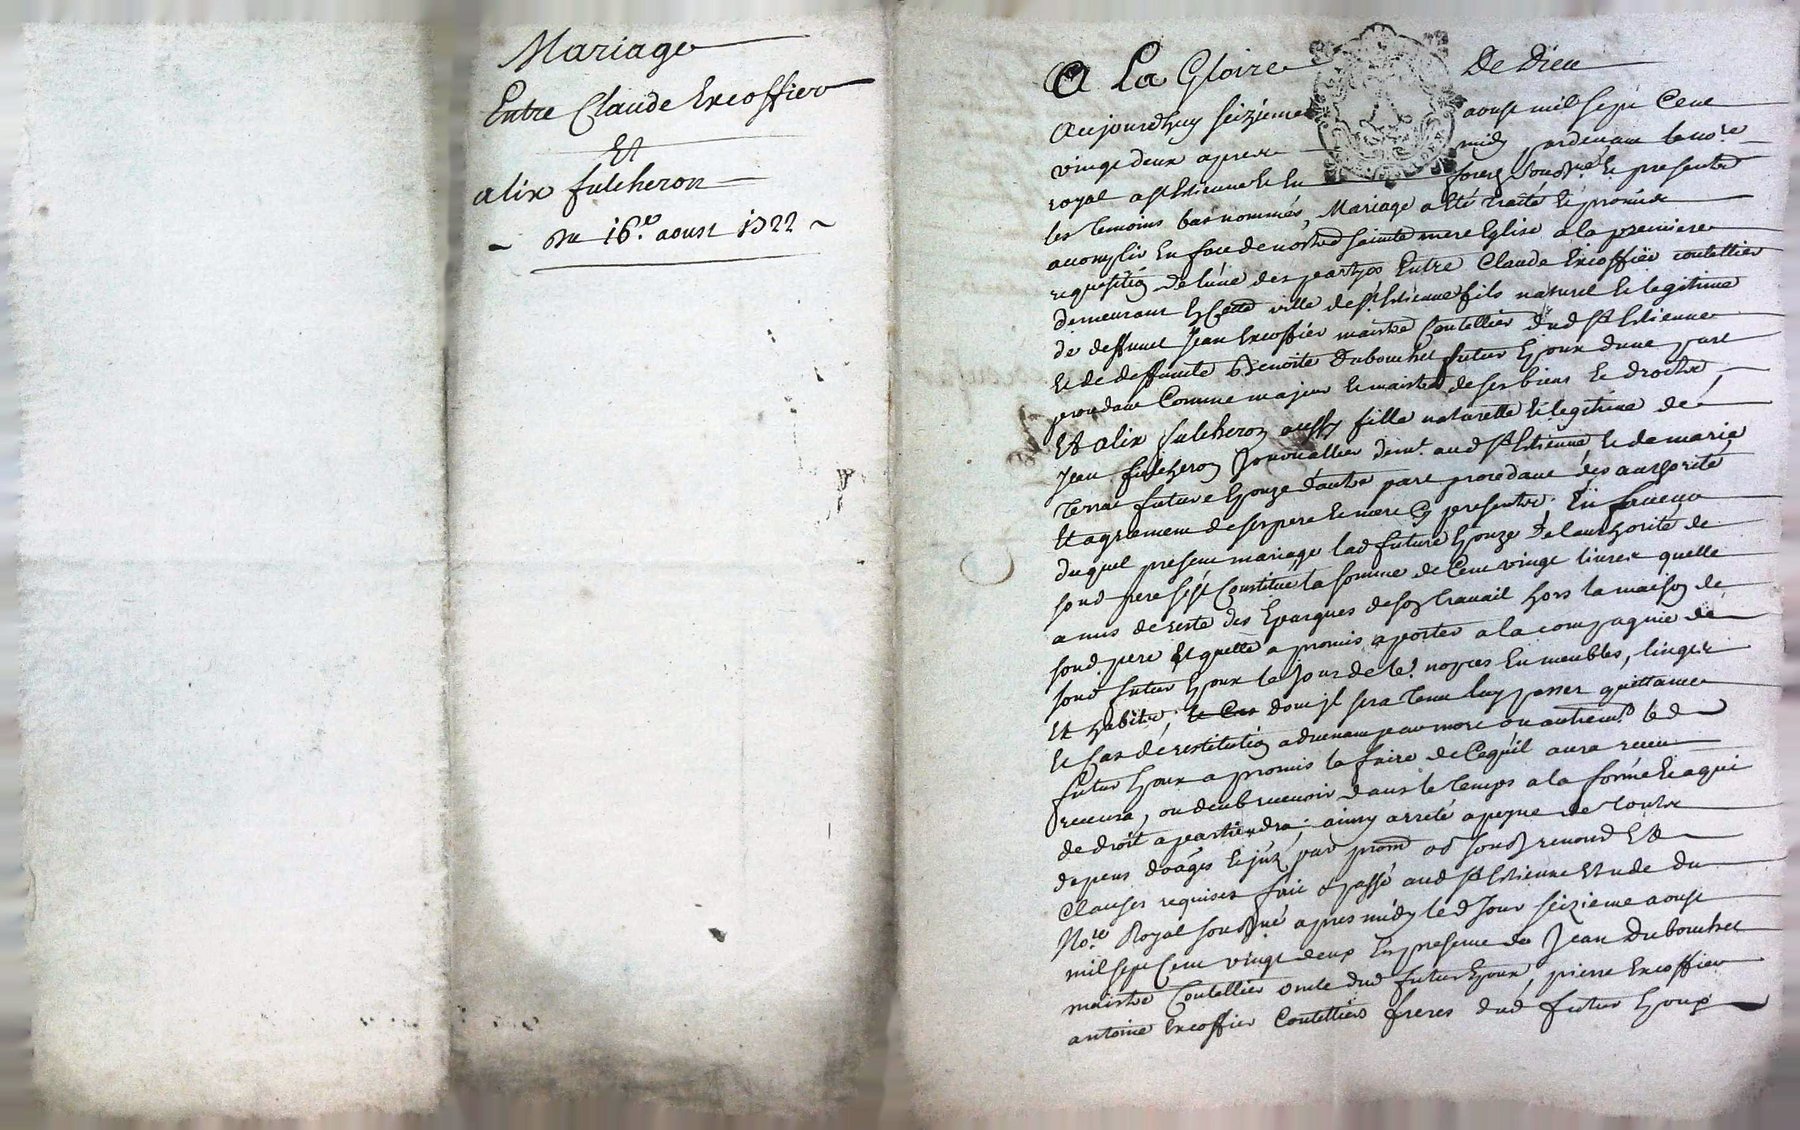 Mariage
Entre Claude Excoffier
Et
alix fulcheron
Du 16e. aoust 1722
A La Gloire De Dieu
Aujourdhuy seizieme aoust mil sept Cent
vingt deux apres midy pardevant le nore
royal a st Estienne En forez soussigné Et presents
les temoins bas nommés, Mariage a Eté traité Et promis
accomplir En face de nostre sainte mere Eglise a la premiere
requisition de lune des partyes Entre Claude Excoffier coutellier
demeurant En Cette ville de st Estienne fils naturel Et legitime
de deffunct Jean Excoffier maistre Coutellier dud st Estienne
Et de deffuncte Benoite Dubouchet futur Epoux dune part
procedant Comme majeur Et maistre de ses biens Et droits,
Et alix fulcheron aussy fille naturelle Et legitime de
Jean fulcheron Journallier demt. aud st Estienne Et de marie
Terra future Epouze dautre part procedant des authorité
Et agrement de ses pere Et mere Cy presents; En faveur
duquel present mariage lad future Epouze De lauthorité de
sond pere sest Constitué la somme de Cent vingt livres quelle
a mis de reste des Epargnes de son travail hors la maison de
sond pere Et quelle a promis aporter a la compagnie de
sond futur Epoux le jour de leurs nopces En meubles, linges
Et habits, le Cas dont jl sera tenu luy passer quittance
Et Cas de restitution advenant par mort ou autremt led
futur Epoux a promis la faire de Cequil aura receu
recevra, ou deub recevoir dans le temps a la forme Et a qui
de droit apartiendra; ainsy arrêté a peyne de touts
depens domages Et
Clauses requises fait Et passé aud st Estienne Etude du
Nore Royal soussigné apres midy led Jour seizieme aoust
mil sept Cent vingt deux En presence de Jean Dubouchet
maistre Coutellier oncle dud futur Epoux, pierre Excoffier
antoine Excoffier Coutelliers freres dud futur Epoux